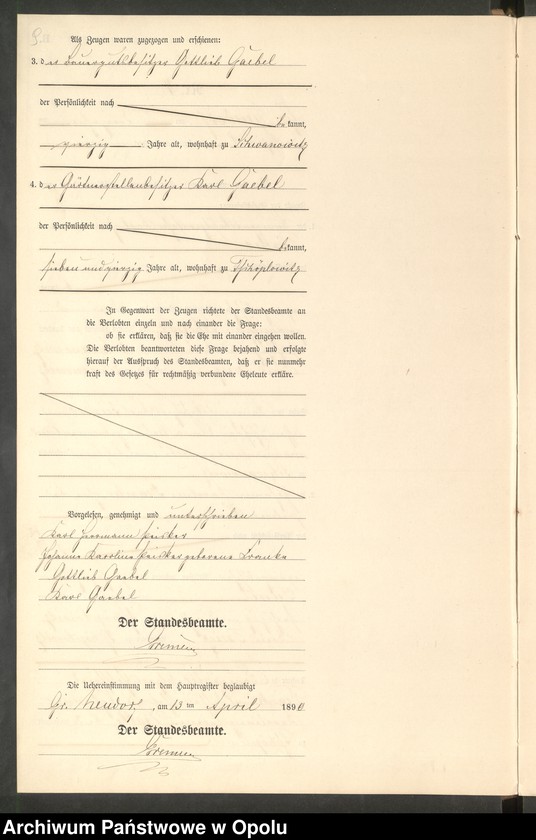 Als Zeugen waren zugezogen und erschienen:
3. der Bauergutsbesitzer Gottlieb Gaebel
der Persönlichkeit nach
be kannt,
vierzig Jahre alt, wohnhaft zu Schwanowitz
4. der Gärtnerstellenbesitzer Karl Gaebel
der Persönlichkeit nach
be kannt,
sieben und vierzig Jahre alt, wohnhaft zu Tschöplowitz
In Gegenwart der Zeugen richtete der Standesbeamte an
die Verlobten einzeln und nach einander die Frage:
ob sie erklären, daß sie die Ehe mit einander eingehen wollen.
Die Verlobten beantworteten diese Frage bejahend und erfolgte
hierauf der Ausspruch des Standesbeamten, daß er sie nunmehr
kraft des Gesetzes für rechtmäßig verbundene Eheleute erkläre.
Vorgelesen, genehmigt und unterschrieben
Karl Herrmann Peisker
Johanna Karolina Peisker geborene Franke
Gottlieb Gaebel
Karl Gaebel
Der Standesbeamte.
Die Uebereinstimmung mit dem Hauptregister beglaubigt
Gr. Neudorf, am 13 ten April 189
Der Standesbeamte.
Archiwum Państwowe w Opolu